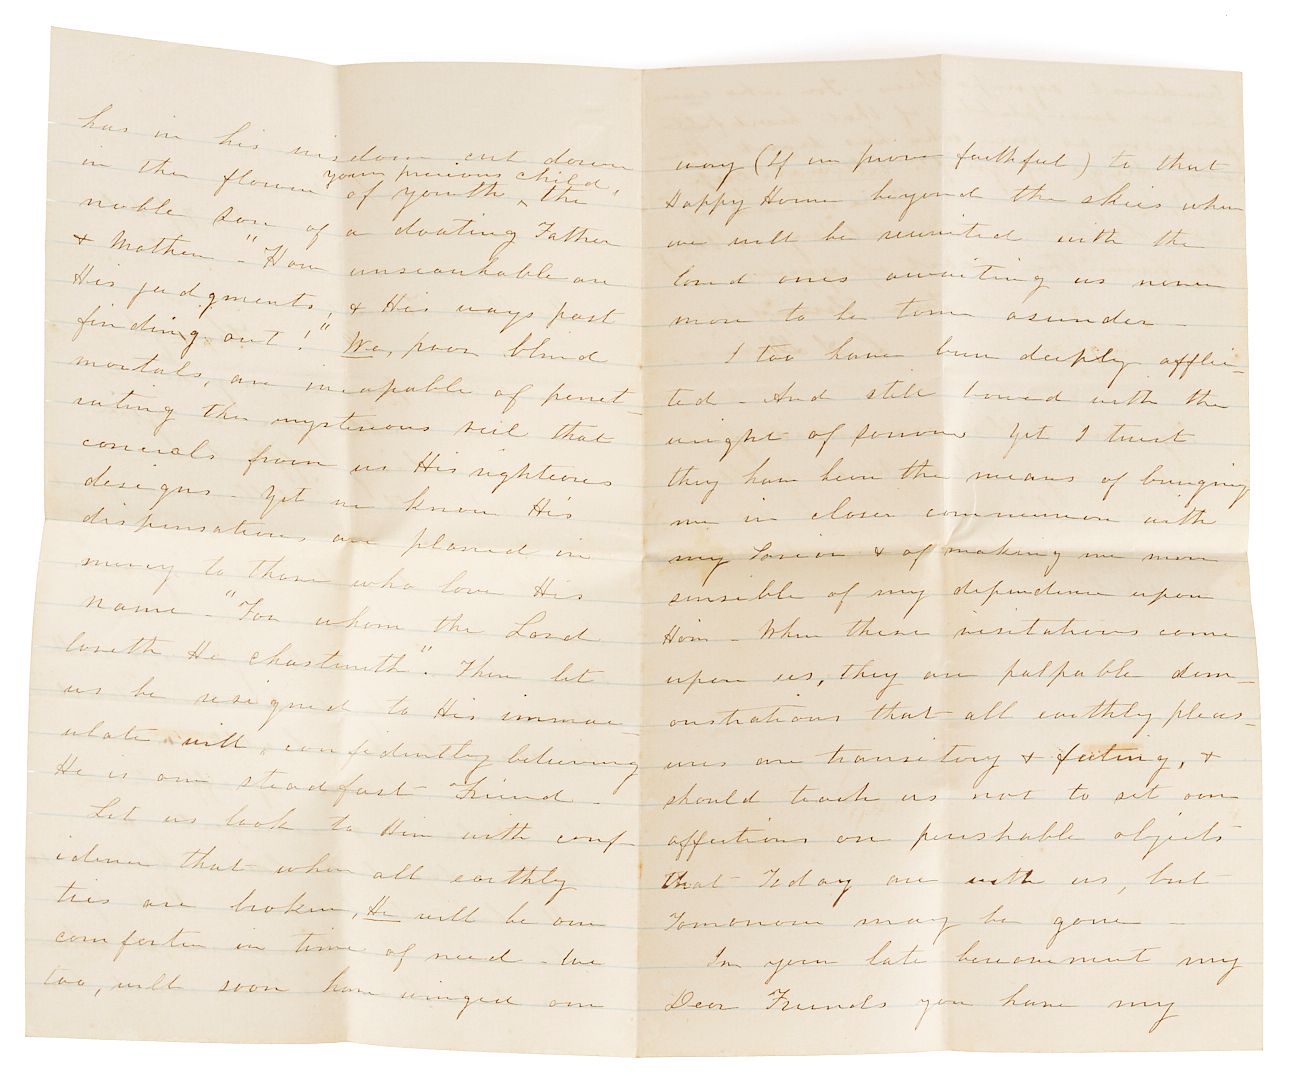 has in his wisdom cut down
your precious child,
in the flower of youth ^ the
noble son of a doating Father
& Mother - "How unsearchable are
His judgments, & His ways past
finding out!" We, poor blind
mortals, are incapable of penet-
rating the mysterious veil that
conceals from us His righteous
designs - Yet we know His
dispensations are planed in
mercy to those who love His
name - "For whom the Lord
loveth He chasteneth". Then let
us be resigned to His immac-
ulate will, confidently believing
He is our steadfast Friend -
Let us look to Him with conf-
idence that when all earthly
ties are broken, He will be our
comforter in time of need - We
too, will soon have winged our
way (If we prove faithful) to that
Happy Home beyond the skies where
we will be reunited with the
loved ones awaiting us never
more to be torn asunder -
I too have been deeply afflic-
ted - And still bowed with the
weight of sorrow Yet I trust
they have been the means of bringing
me in closer communion with
my Savior & of making me more
sensible of my dependence upon
Him - When these visitations come
upon us, they are palpable dem-
onstrations that all earthly pleas-
ures are transitory & fleeting, &
should teach us not to set our
affections on perishable objects
that Today are with us, but
Tomorrow may be gone -
In your late bereavement my
Dear Friends you have my